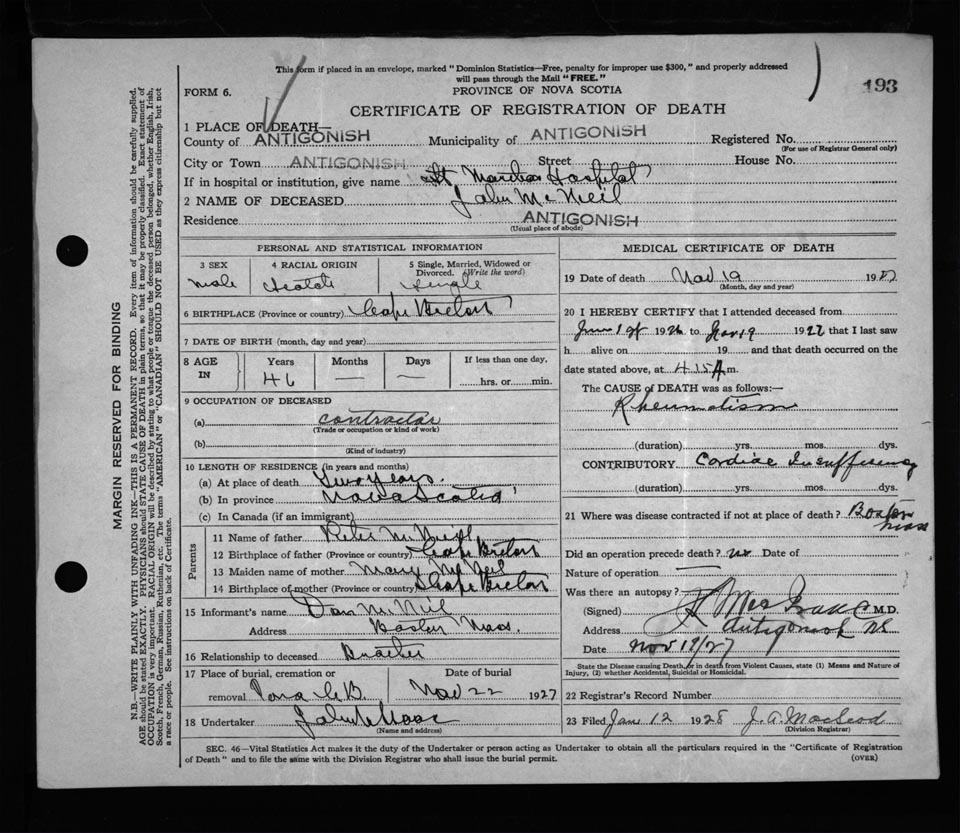 This form if placed in an envelope, marked "Dominion Statistics—Free, penalty for improper use $300," and properly addressed
will pass through the Mail "FREE."
FORM 6.
PROVINCE OF NOVA SCOTIA
193
CERTIFICATE OF REGISTRATION OF DEATH
1 PLACE OF DEATH—
County of ANTIGONISH Municipality of ANTIGONISH Registered No.
(For use of Registrar General only)
City or Town ANTIGONISH Street House No.
If in hospital or institution, give name St Marthas Hospital
2 NAME OF DECEASED John McNeil
Residence ANTIGONISH
(Usual place of abode)
PERSONAL AND STATISTICAL INFORMATION
3 SEX 4 RACIAL ORIGIN 5 Single, Married, Widowed or Divorced. (Write the word)
male Scotch Single
6 BIRTHPLACE (Province or country) Cape Breton
7 DATE OF BIRTH (month, day and year)
8 AGE IN Years Months Days If less than one day,
46 — — hrs. or min.
9 OCCUPATION OF DECEASED
(a) contractor
(Trade or occupation or kind of work)
(b)
(Kind of industry)
10 LENGTH OF RESIDENCE (in years and months)
(a) At place of death Two Years.
(b) In province Nova Scotia
(c) In Canada (if an immigrant)
Parents
11 Name of father Peter McNeil
12 Birthplace of father (Province or country) Cape Breton
13 Maiden name of mother Mary McNeil
14 Birthplace of mother (Province or country) Cape Breton
15 Informant's name Dan McNeil
Address Boston Mass.
16 Relationship to deceased Brother
17 Place of burial, cremation or
removal Iona C.B. Date of burial Nov 22 1927
18 Undertaker
(Name and address)
MEDICAL CERTIFICATE OF DEATH
19 Date of death Nov 19 1927
(Month, day and year)
20 I HEREBY CERTIFY that I attended deceased from
June 1st 1926 to Nov 19 1927 that I last saw
h alive on 19 and that death occurred on the
date stated above, at 4.15 A m.
The CAUSE of DEATH was as follows:—
Rheumatism
(duration) yrs. mos. dys.
CONTRIBUTORY Cardiac Insufficiency
(duration) yrs. mos. dys.
21 Where was disease contracted if not at place of death? Boston Mass
Did an operation precede death? no Date of
Nature of operation —
Was there an autopsy?
(Signed) MacIsaac M.D.
Address Antigonish NS
Date Nov 19/27
State the Disease causing Death, or in death from Violent Causes, state (1) Means and Nature of
Injury, (2) whether Accidental, Suicidal or Homicidal.
22 Registrar's Record Number
23 Filed Jan 12 1928 J. A. MacLeod
(Division Registrar)
SEC. 46—Vital Statistics Act makes it the duty of the Undertaker or person acting as Undertaker to obtain all the particulars required in the "Certificate of Registration
of Death" and to file the same with the Division Registrar who shall issue the burial permit.
(OVER)
MARGIN RESERVED FOR BINDING
N.B.—WRITE PLAINLY WITH UNFADING INK—THIS IS A PERMANENT RECORD. Every item of information should be carefully supplied.
AGE should be stated EXACTLY. PHYSICIANS should STATE CAUSE OF DEATH in plain terms, so that it may be properly classified. Exact statement of
OCCUPATION is very important. RACIAL ORIGIN will be described by stating to what people or tongue the deceased person belonged, whether English, Irish,
Scotch, French, German, Russian, Ruthenian, etc. The terms "AMERICAN" or "CANADIAN" SHOULD NOT BE USED as they express citizenship but not
a race or people. See instructions on back of Certificate.